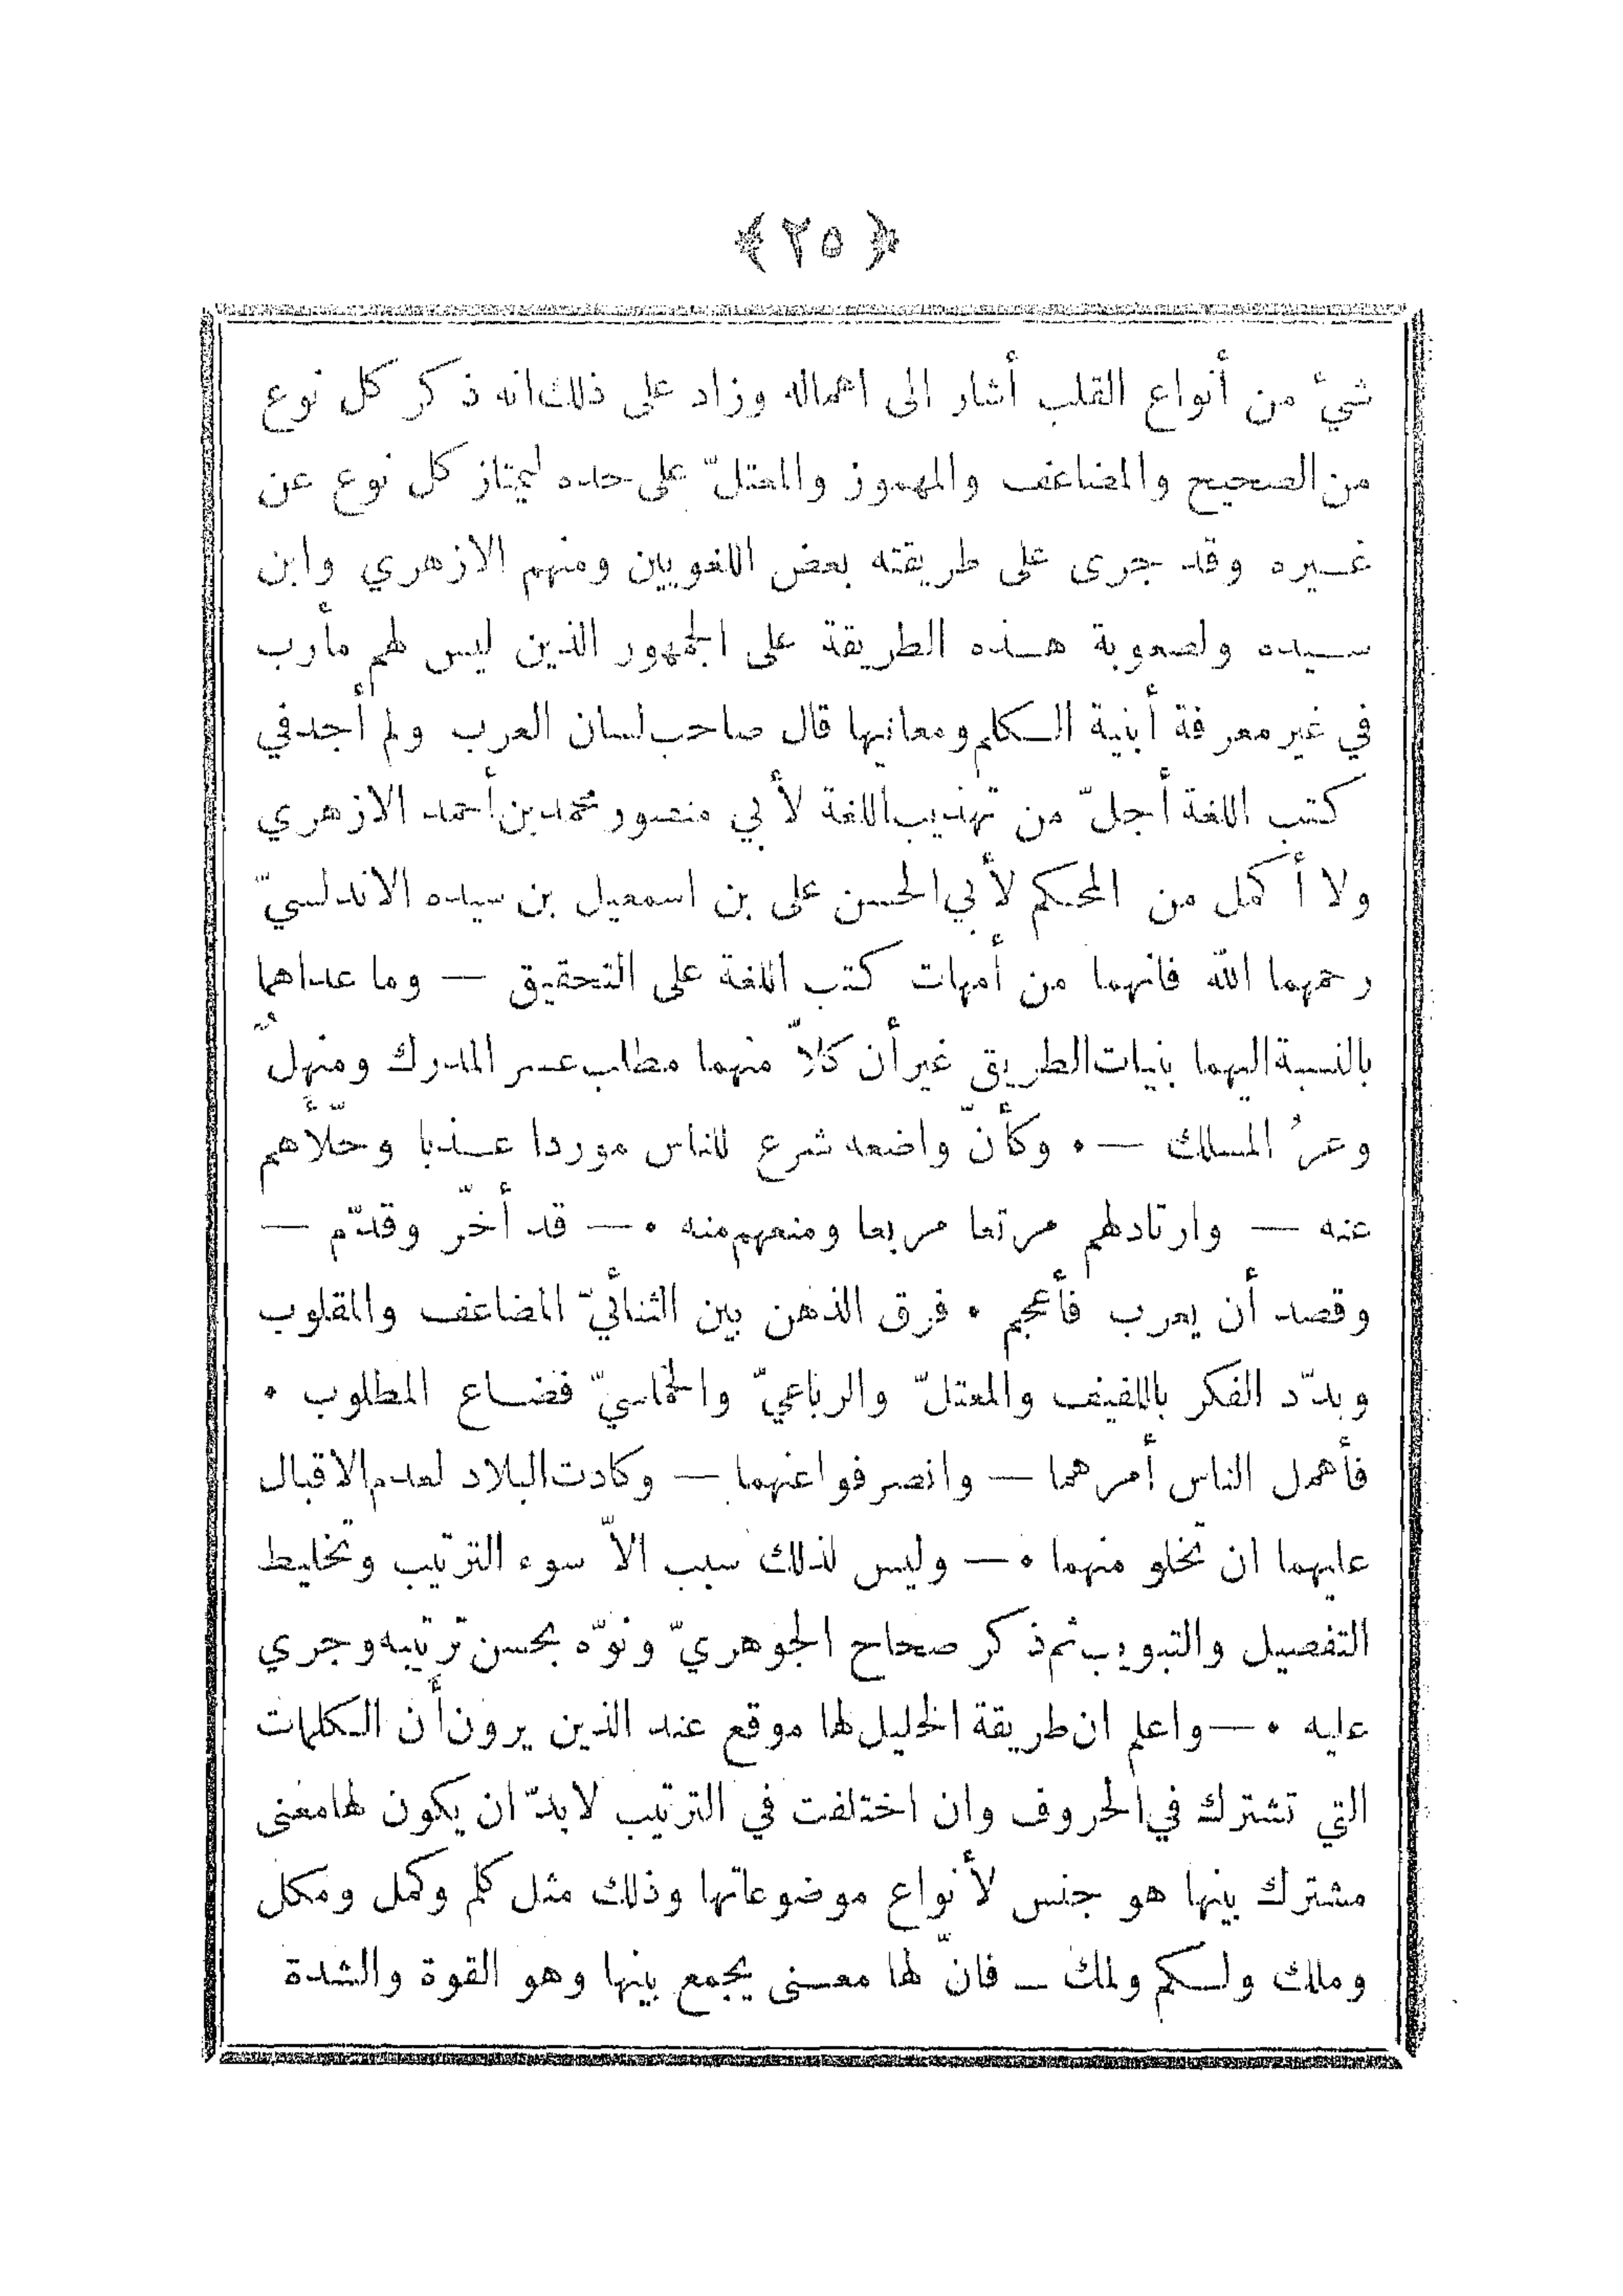 ﴿ ٢٥ ﴾
شيء من أنواع القلب أشار الى اهماله وزاد على ذلك انه ذكر كل نوع
من الصحيح والمضاعف والمهموز والمعتلّ على حده ليمتاز كل نوع عن
غيره وقد جرى على طريقته بعض اللغويين ومنهم الازهري وابن
سيده ولصعوبة هذه الطريقة على الجمهور الذين ليس لهم مأرب
في غير معرفة أبنية الكلم ومعانيها قال صاحب لسان العرب ولم أجد في
كتب اللغة أجلّ من تهذيب اللغة لأبي منصور محمد بن أحمد الازهري
ولا أكمل من المحكم لأبي الحسن على بن اسمعيل بن سيده الاندلسيّ
رحمهما الله فانهما من أمهات كتب اللغة على التحقيق — وما عداهما
بالنسبة اليهما بنيات الطريق غير أن كلاّ منهما مطلب عسر المدرك ومنهلٌ
وعرُ المسلك — • وكأنّ واضعه شرع للناس موردا عذبا وحلّأهم
عنه — وارتادهم مرتعا مربعا ومنعهم منه • — قد أخّر وقدّم —
وقصد أن يعرب فأعجم • فرق الذهن بين الثنائيّ المضاعف والمقلوب
وبدّد الفكر باللفيف والمعتلّ والرباعيّ والخماسيّ فضاع المطلوب •
فأهمل الناس أمرهما — وانصرفوا عنهما — وكادت البلاد لعدم الاقبال
عليهما ان تخلو منهما • — وليس لذلك سبب الاّ سوء الترتيب وتخليط
التفصيل والتبويب ثم ذكر صحاح الجوهريّ ونوّه بحسن ترتيبه وجري
عليه • — واعلم ان طريقة الخليل لها موقع عند الذين يرون أن الكلمات
التي تشترك في الحروف وان اختلفت في الترتيب لا بدّ ان يكون لها معنى
مشترك بينها هو جنس لأنواع موضوعاتها وذلك مثل كلم وكمل ومكل
وملك ولكم ولمك — فانّ لها معنى يجمع بينها وهو القوة والشدة